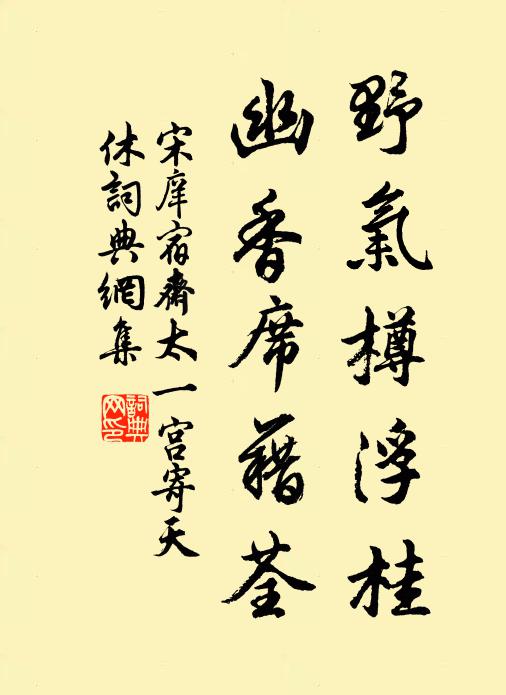 野氣樽浮桂
幽香席藉荃
宋庠宿齋太一宮寄天
休詞典網集
詞典网印